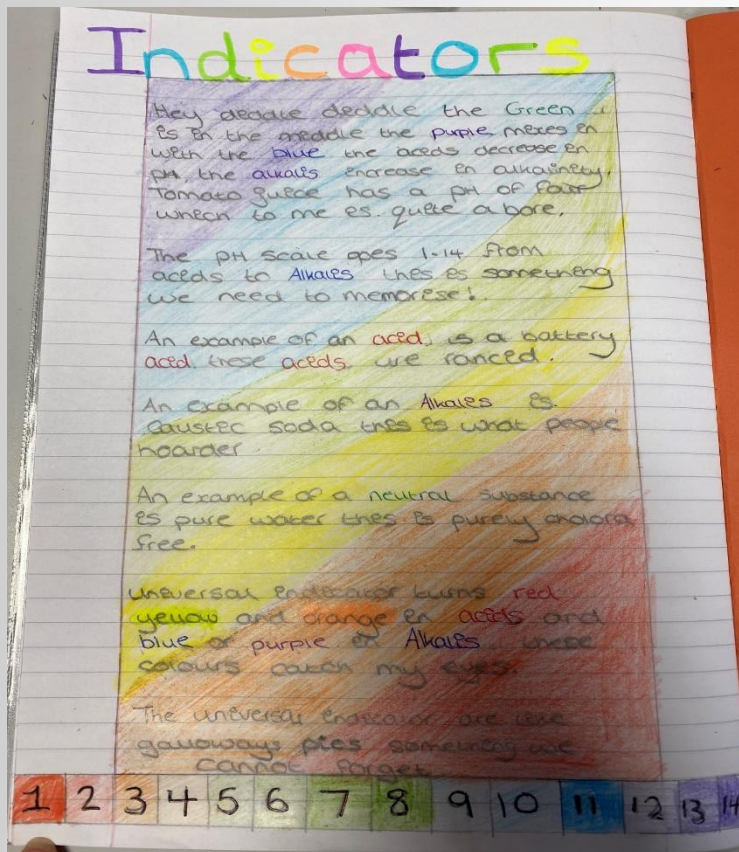 Indicators
Hey deddle deddle the Green
es en the meddle the purple mexes en
with the blue the aceds decrease en
pH, the alkalis encrease en alkalinety.
Tomato juece has a pH of four
whech to me es. quete a bore.
The pH scale goes 1-14 from
aceds to Alkales thes es something
we need to memorese!
An example of an aced, is a battery
aced, these aceds, are ranced.
An example of an Alkales es
caustec soda thes es what people
hoarder.
An example of a neutral substance
es pure water thes. is purely
free.
Uneversal endecator turns red
yellow and orange en aceds and
blue or purple en Alkales these
colours catch my eyes.
The uneversal endecator are like
galloways pies something we
cannot forget
1 2 3 4 5 6 7 8 9 10 11 12 13 14